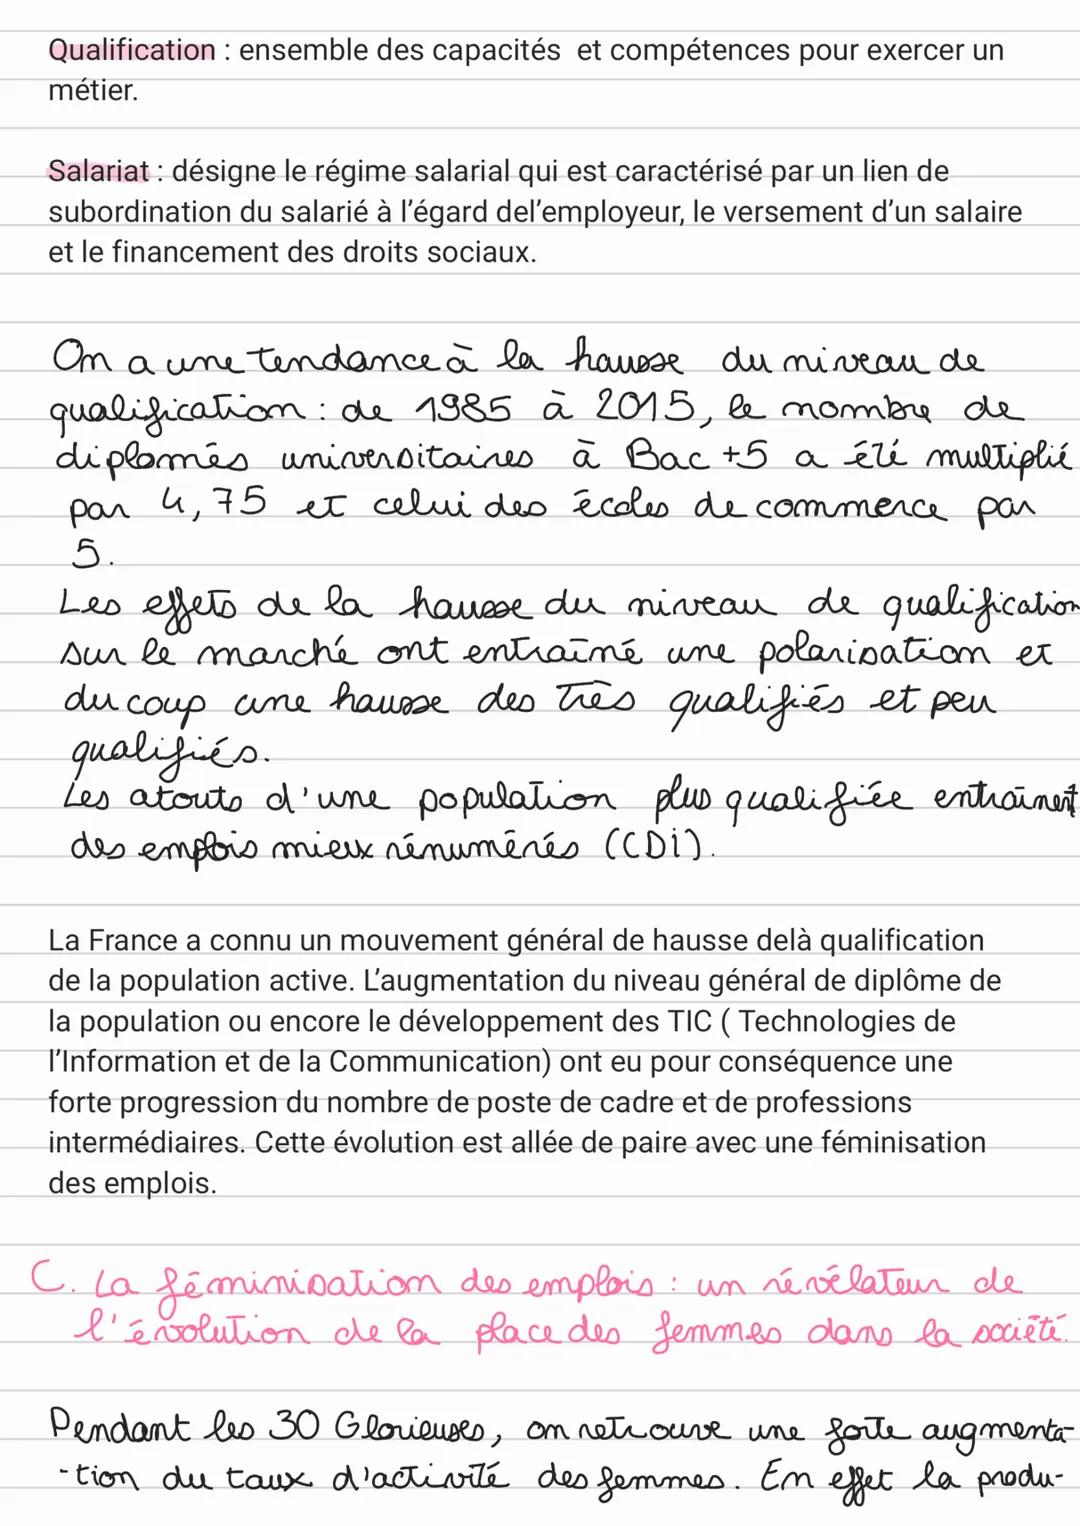 Qualification : ensemble des capacités et compétences pour exercer un
métier.
Salariat : désigne le régime salarial qui est caractérisé par un lien de
subordination du salarié à l'égard del'employeur, le versement d'un salaire
et le financement des droits sociaux.
On a une tendance à la hausse du niveau de
qualification : de 1985 à 2015, le nombre de
diplomés universitaires à Bac +5 a été multiplié
par 4,75 et celui des écoles de commerce par
5.
Les effets de la hausse du niveau de qualification
sur le marché ont entraîné une polarisation et
du coup une hausse des très qualifiés et peu
qualifiés.
Les atouts d'une population plus qualifiée entraînent
des emplois mieux rénumérés (CDI).
La France a connu un mouvement général de hausse delà qualification
de la population active. L'augmentation du niveau général de diplôme de
la population ou encore le développement des TIC ( Technologies de
l'Information et de la Communication) ont eu pour conséquence une
forte progression du nombre de poste de cadre et de professions
intermédiaires. Cette évolution est allée de paire avec une féminisation
des emplois.
C. La féminisation des emplois : un révélateur de
l'évolution de la place des femmes dans la société.
Pendant les 30 Glorieuses, on retrouve une forte augmenta-
-tion du taux d'activité des femmes. En effet la produ-